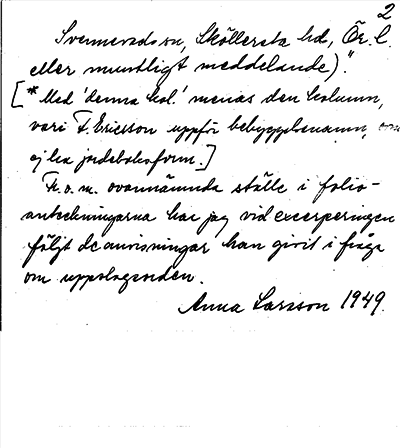 2
Svennevads sn, Sköllersta hd, Ör. l.
eller muntligt meddelande)".
[* Med 'denna kol.' menas den kolumn,
vari F. Ericson uppför bebyggelsenamn,
ej bra jordeboksform.]
Fr. o. m. ovannämnda ställe i folio-
anteckningarna har jag vid excerperingen
följt de anvisningar han givit i fråga
om uppslagsorden.
Anna Larsson 1949.